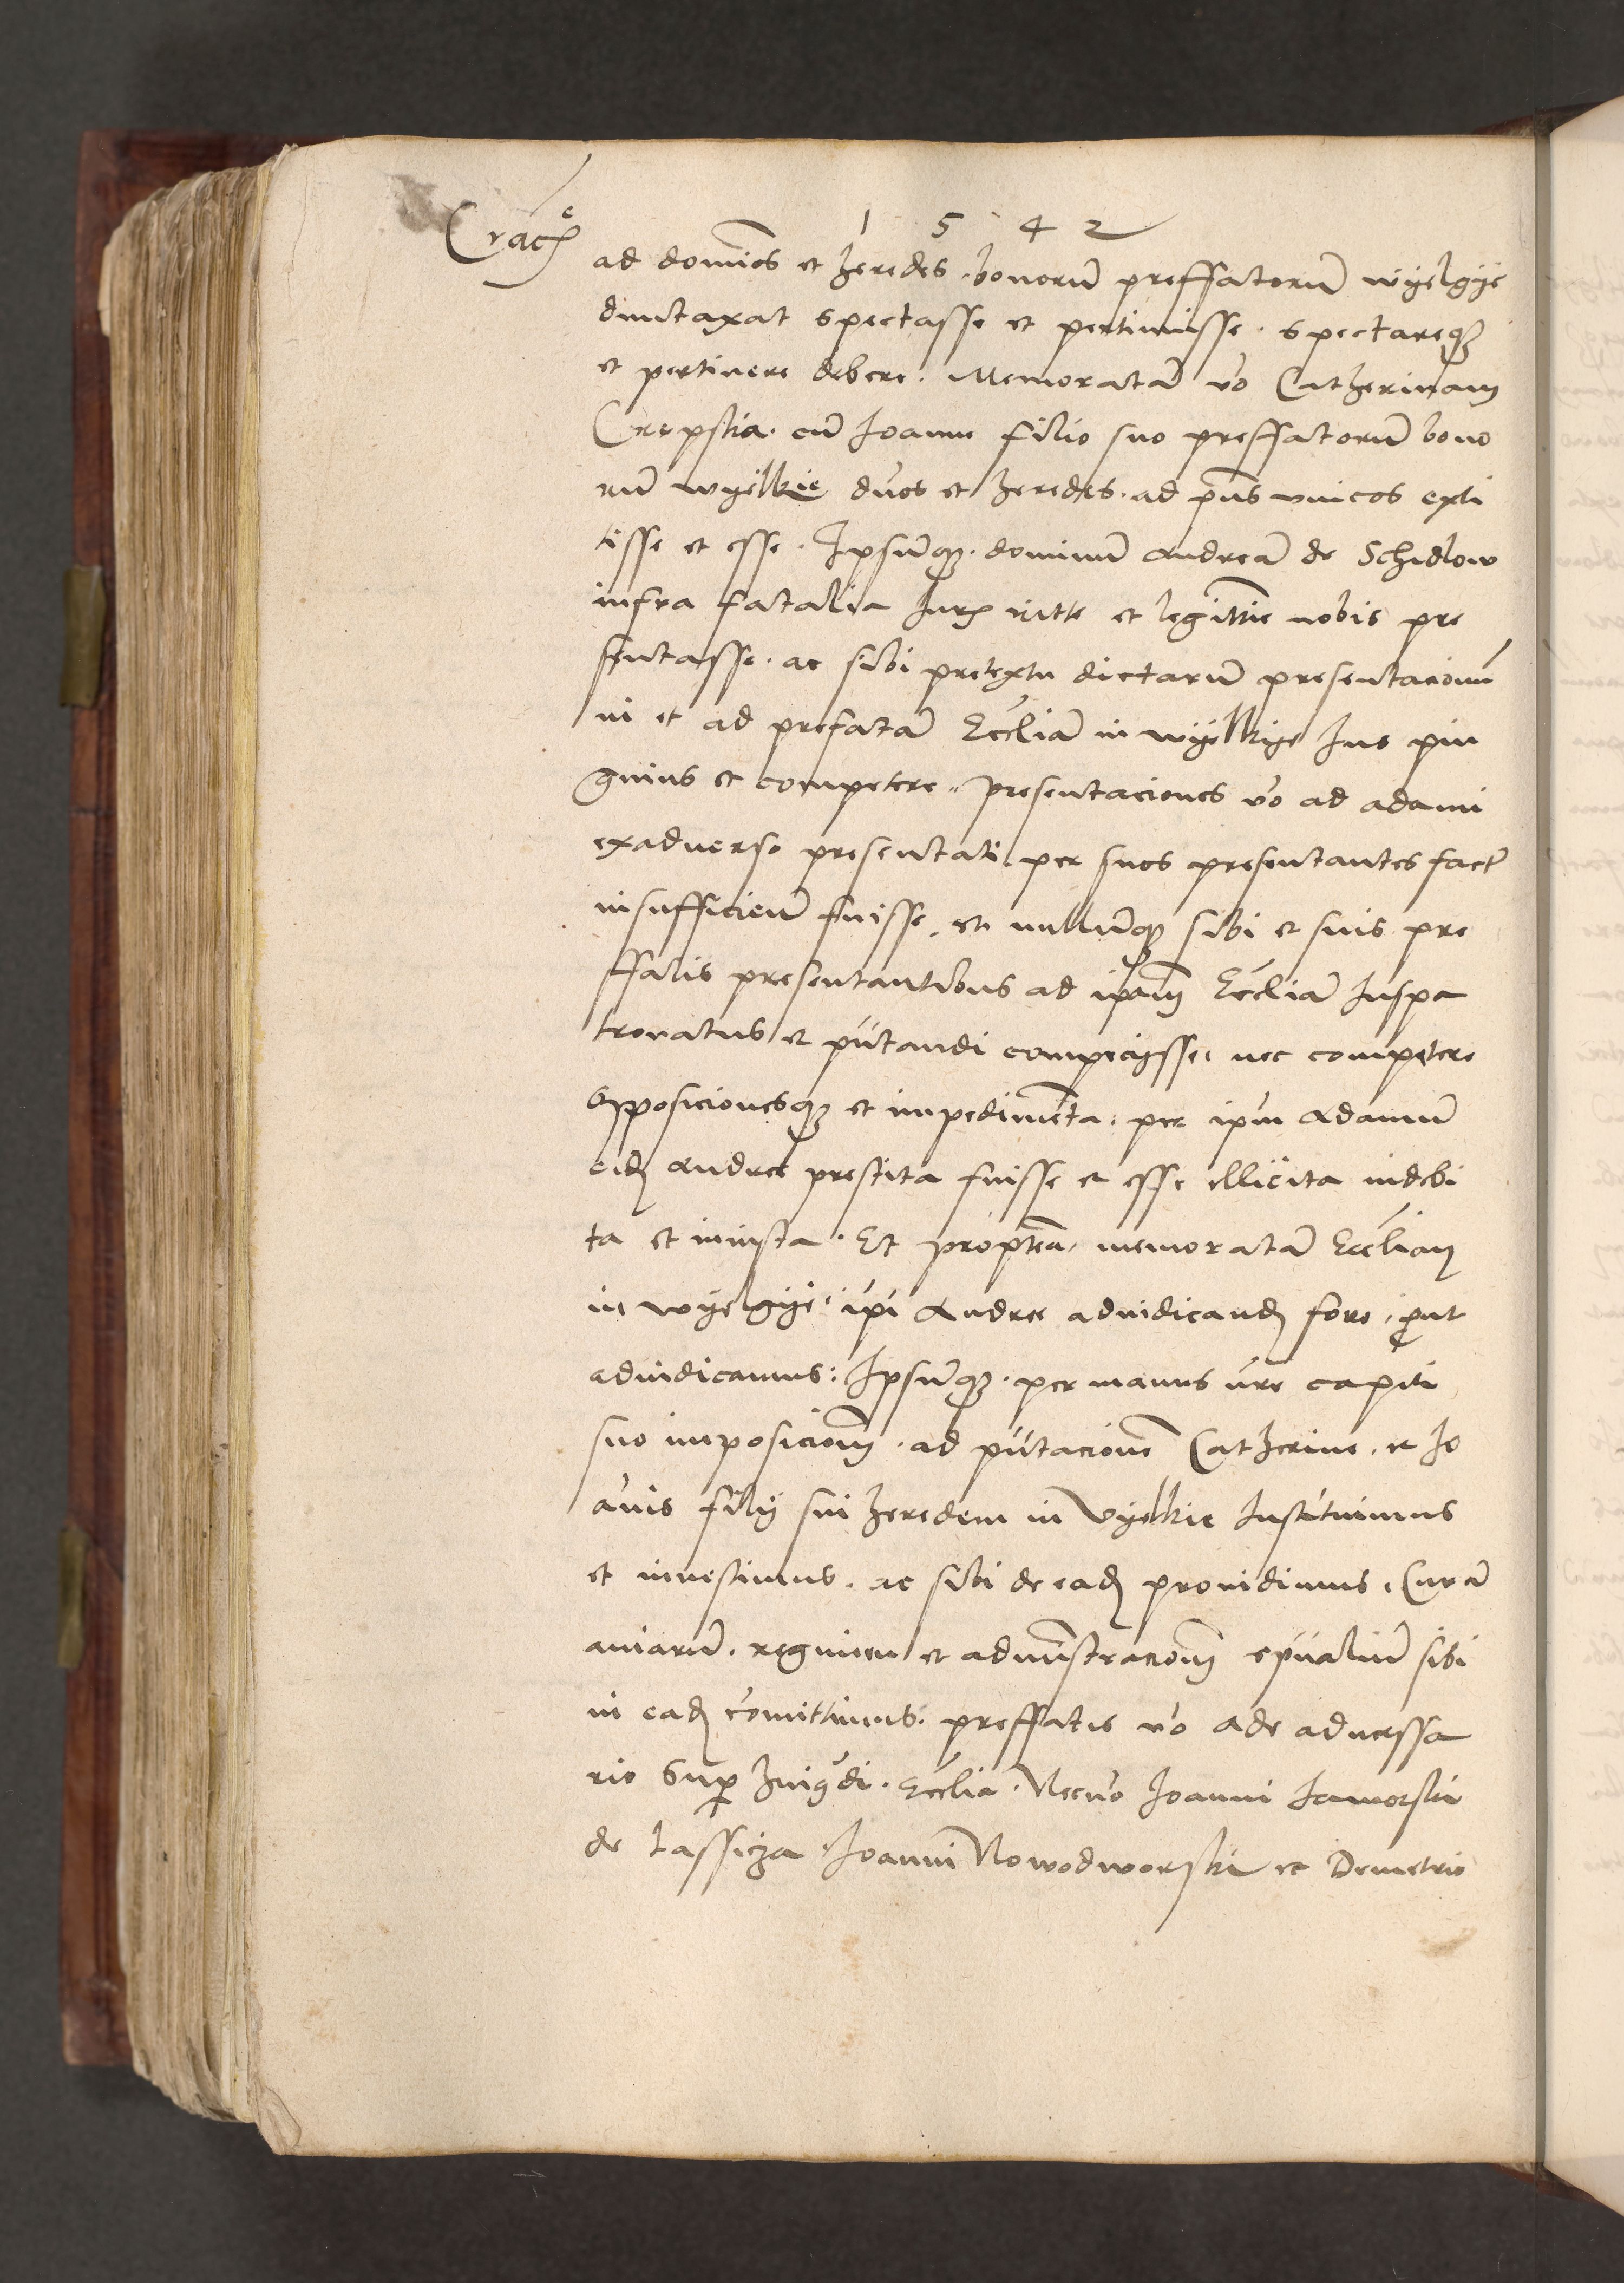 1 5 4 2
Crac͞e
ad dominos et heredes bonorum preffatorum wyelgye
duntaxat spectasse et pertinuisse. spectareq3
et pertinere debere. Memoratam vo Catherinam
Crepska. cum Joanne filio suo preffatorum bono
rum wyelkie duos et heredes. ad pns vnicos exti
tisse et esse. Ipsumq3. dominum andream de Schidlow
infra fatalia Juris ritte et legittime nobis pre
sentasse. ac sibi pretextu dictarum presentacionum
in et ad prefatam Eccliam in wyelkye Jus pin
gnius et competere. presentaciones vo ad adami
exaduerso presentati. per suos presentantes fact
insufficien fuisse. et nullumq3 sibi et suis pre
ffatis presentantibus ad ipam Eccliam Juspa
tronatus et pntandi compecysse. nec competere
Opposicionesq3 et impedimenta. per ipm Adamum
eid andree prestita fuisse et esse illicita indebi
ta et iniusta. Et propterea memoratam Eccliam
in wyelgye. ipi Andree adiudicand fore. prut
adiudicamus: Ipsumq3. per manus nre capiti
suo imposiciom. ad pntacionem Catherine. et Jo
annis filij sui heredem in Vyelkie Instituimus
et inuestimus. ac sibi de ead prouidimus. Curam
aniarum. regimen et administraciom spualium sibi
in ead comittimus. preffatis vo ade aduerssa
rio Sup huiusmodi. Ecclia. Necno Joanni Jaworski
de lassicza Joanni Nowodworski et Demetrio